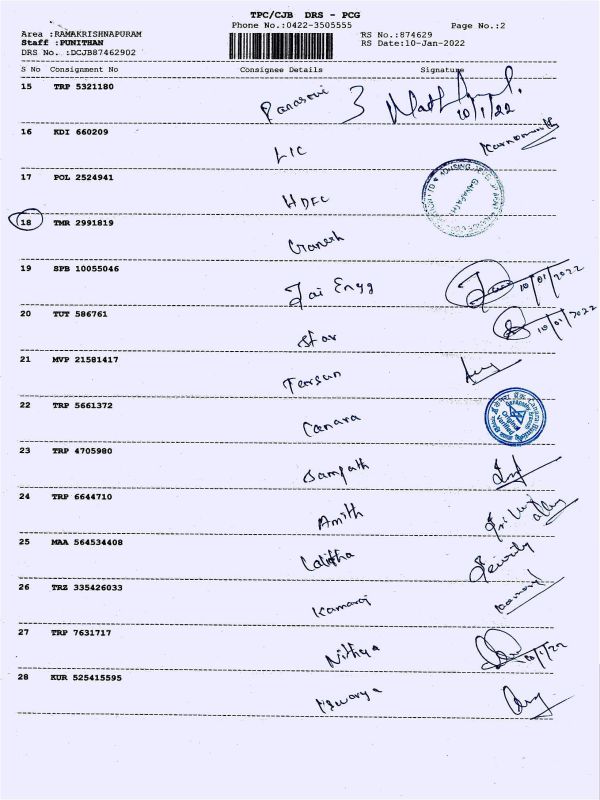 TPC/CJB DRS - PCG
Phone No.:0422-3505555 Page No.:2
Area :RAMAKRISHNAPURAM RS No.:874629
Staff :PUNITHAN RS Date:10-Jan-2022
DRS No. :DCJB87462902
S No Consignment No Consignee Details Signature
15 TRP 5321180 10/1/22
16 KDI 660209 LIC
17 POL 2524941 HDFC
18 TMR 2991819 Ganesh
19 SPB 10055046 Jai Engg 10/01/2022
20 TUT 586761 Star 10/01/2022
21 MVP 21581417
22 TRP 5661372 Canara
23 TRP 4705980 Sampath
24 TRP 6644710 Amith
25 MAA 564534408 Lalitha Security
26 TRZ 335426033 Kamaraj
27 TRP 7631717 Nithya 10/1/22
28 KUR 525415595 Iswarya